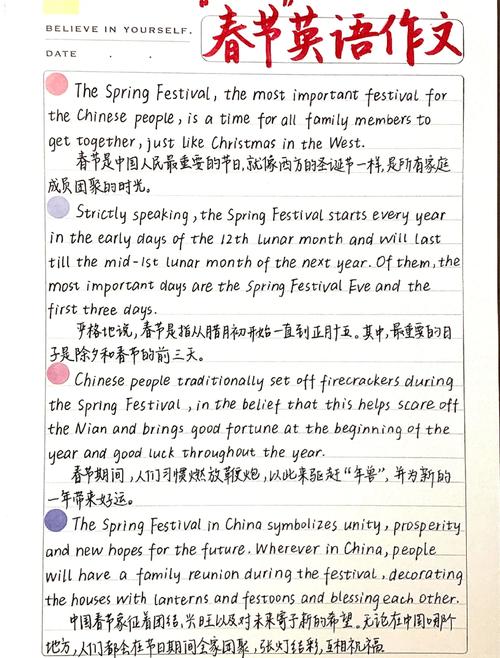 "春节"英语作文
BELIEVE IN YOURSELF.
DATE . .
The Spring Festival, the most important festival for
the Chinese people, is a time for all family members to
get together, just like Christmas in the West.
春节是中国人民最重要的节日,就像西方的圣诞节一样,是所有家庭
成员团聚的时光。
Strictly speaking, the Spring Festival starts every year
in the early days of the 12th lunar month and will last
till the mid-1st lunar month of the next year. Of them, the
most important days are the Spring Festival Eve and the
first three days.
严格地说,春节是指从腊月初开始一直到正月十五。其中,最重要的日
子是除夕和春节的前三天。
Chinese people traditionally set off firecrackers during
the Spring Festival, in the belief that this helps scare off
the Nian and brings good fortune at the beginning of the
year and good luck throughout the year.
春节期间,人们习惯燃放鞭炮,以此来驱赶“年兽”,并为新的
一年带来好运。
The Spring Festival in China symbolizes unity, prosperity
and new hopes for the future. Wherever in China, people
will have a family reunion during the festival, decorating
the houses with lanterns and festoons and blessing each other.
中国春节象征着团结、兴旺以及对未来寄予新的希望。无论在中国哪个
地方,人们都会在节日期间全家团聚,张灯结彩,互相祝福。